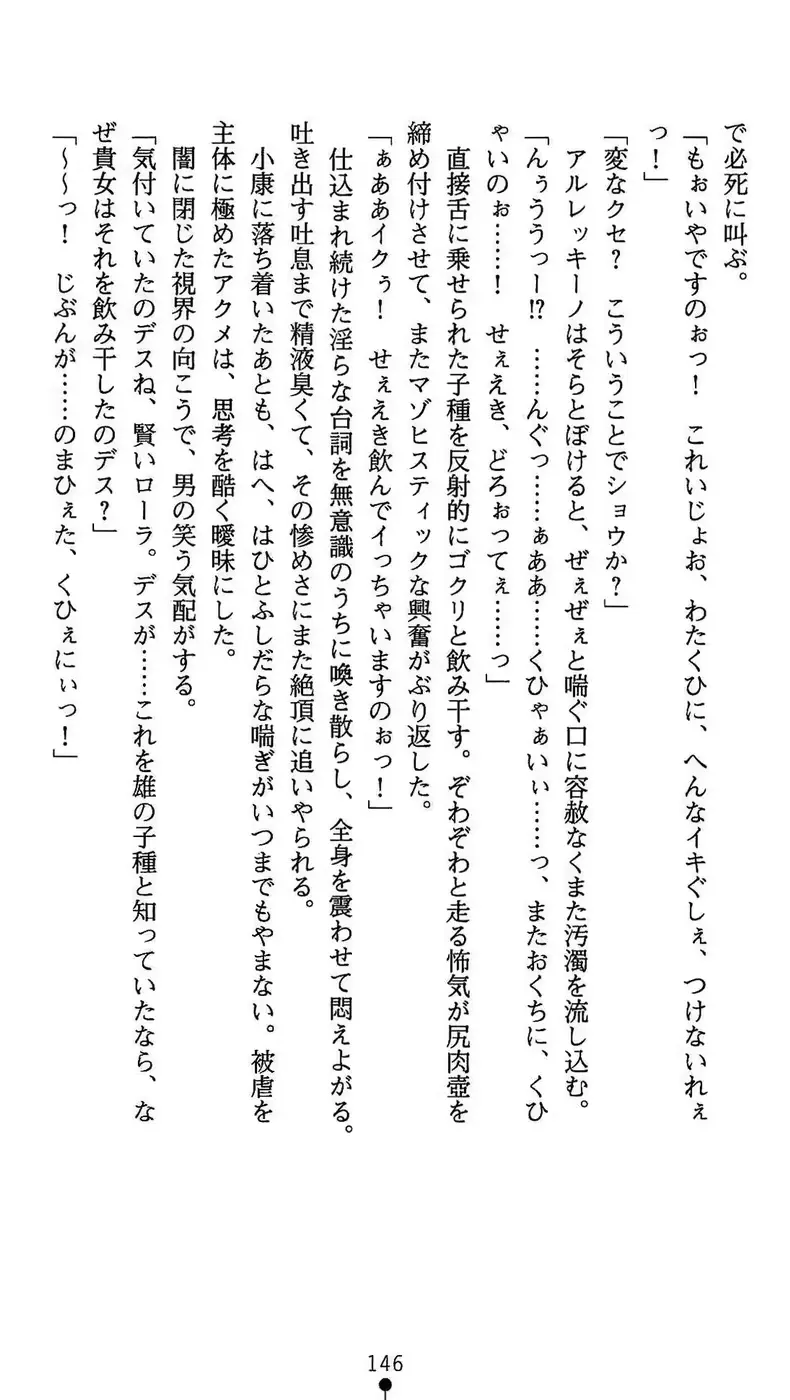 で必死に叫ぶ。
「もぉいやですのぉっ！　これいじょお、わたくひに、へんなイキぐしぇ、つけないれぇ
っ！」
「変なクセ？　こういうことでショウか？」
アルレッキーノはそらとぼけると、ぜぇぜぇと喘ぐ口に容赦なくまた汚濁を流し込む。
「んぅううっー⁉　……んぐっ……ぁああ……くひゃぁいぃ……っ、またおくちに、くひ
ゃいのぉ……！　せぇえき、どろぉってぇ……っ」
直接舌に乗せられた子種を反射的にゴクリと飲み干す。ぞわぞわと走る怖気が尻肉壺を
締め付けさせて、またマゾヒスティックな興奮がぶり返した。
「ぁああイクぅ！　せぇえき飲んでイっちゃいますのぉっ！」
仕込まれ続けた淫らな台詞を無意識のうちに喚き散らし、全身を震わせて悶えよがる。
吐き出す吐息まで精液臭くて、その惨めさにまた絶頂に追いやられる。
小康に落ち着いたあとも、はへ、はひとふしだらな喘ぎがいつまでもやまない。被虐を
主体に極めたアクメは、思考を酷く曖昧にした。
闇に閉じた視界の向こうで、男の笑う気配がする。
「気付いていたのデスね、賢いローラ。デスが……これを雄の子種と知っていたなら、な
ぜ貴女はそれを飲み干したのデス？」
「～～っ！　じぶんが……のまひぇた、くひぇにぃっ！」
146